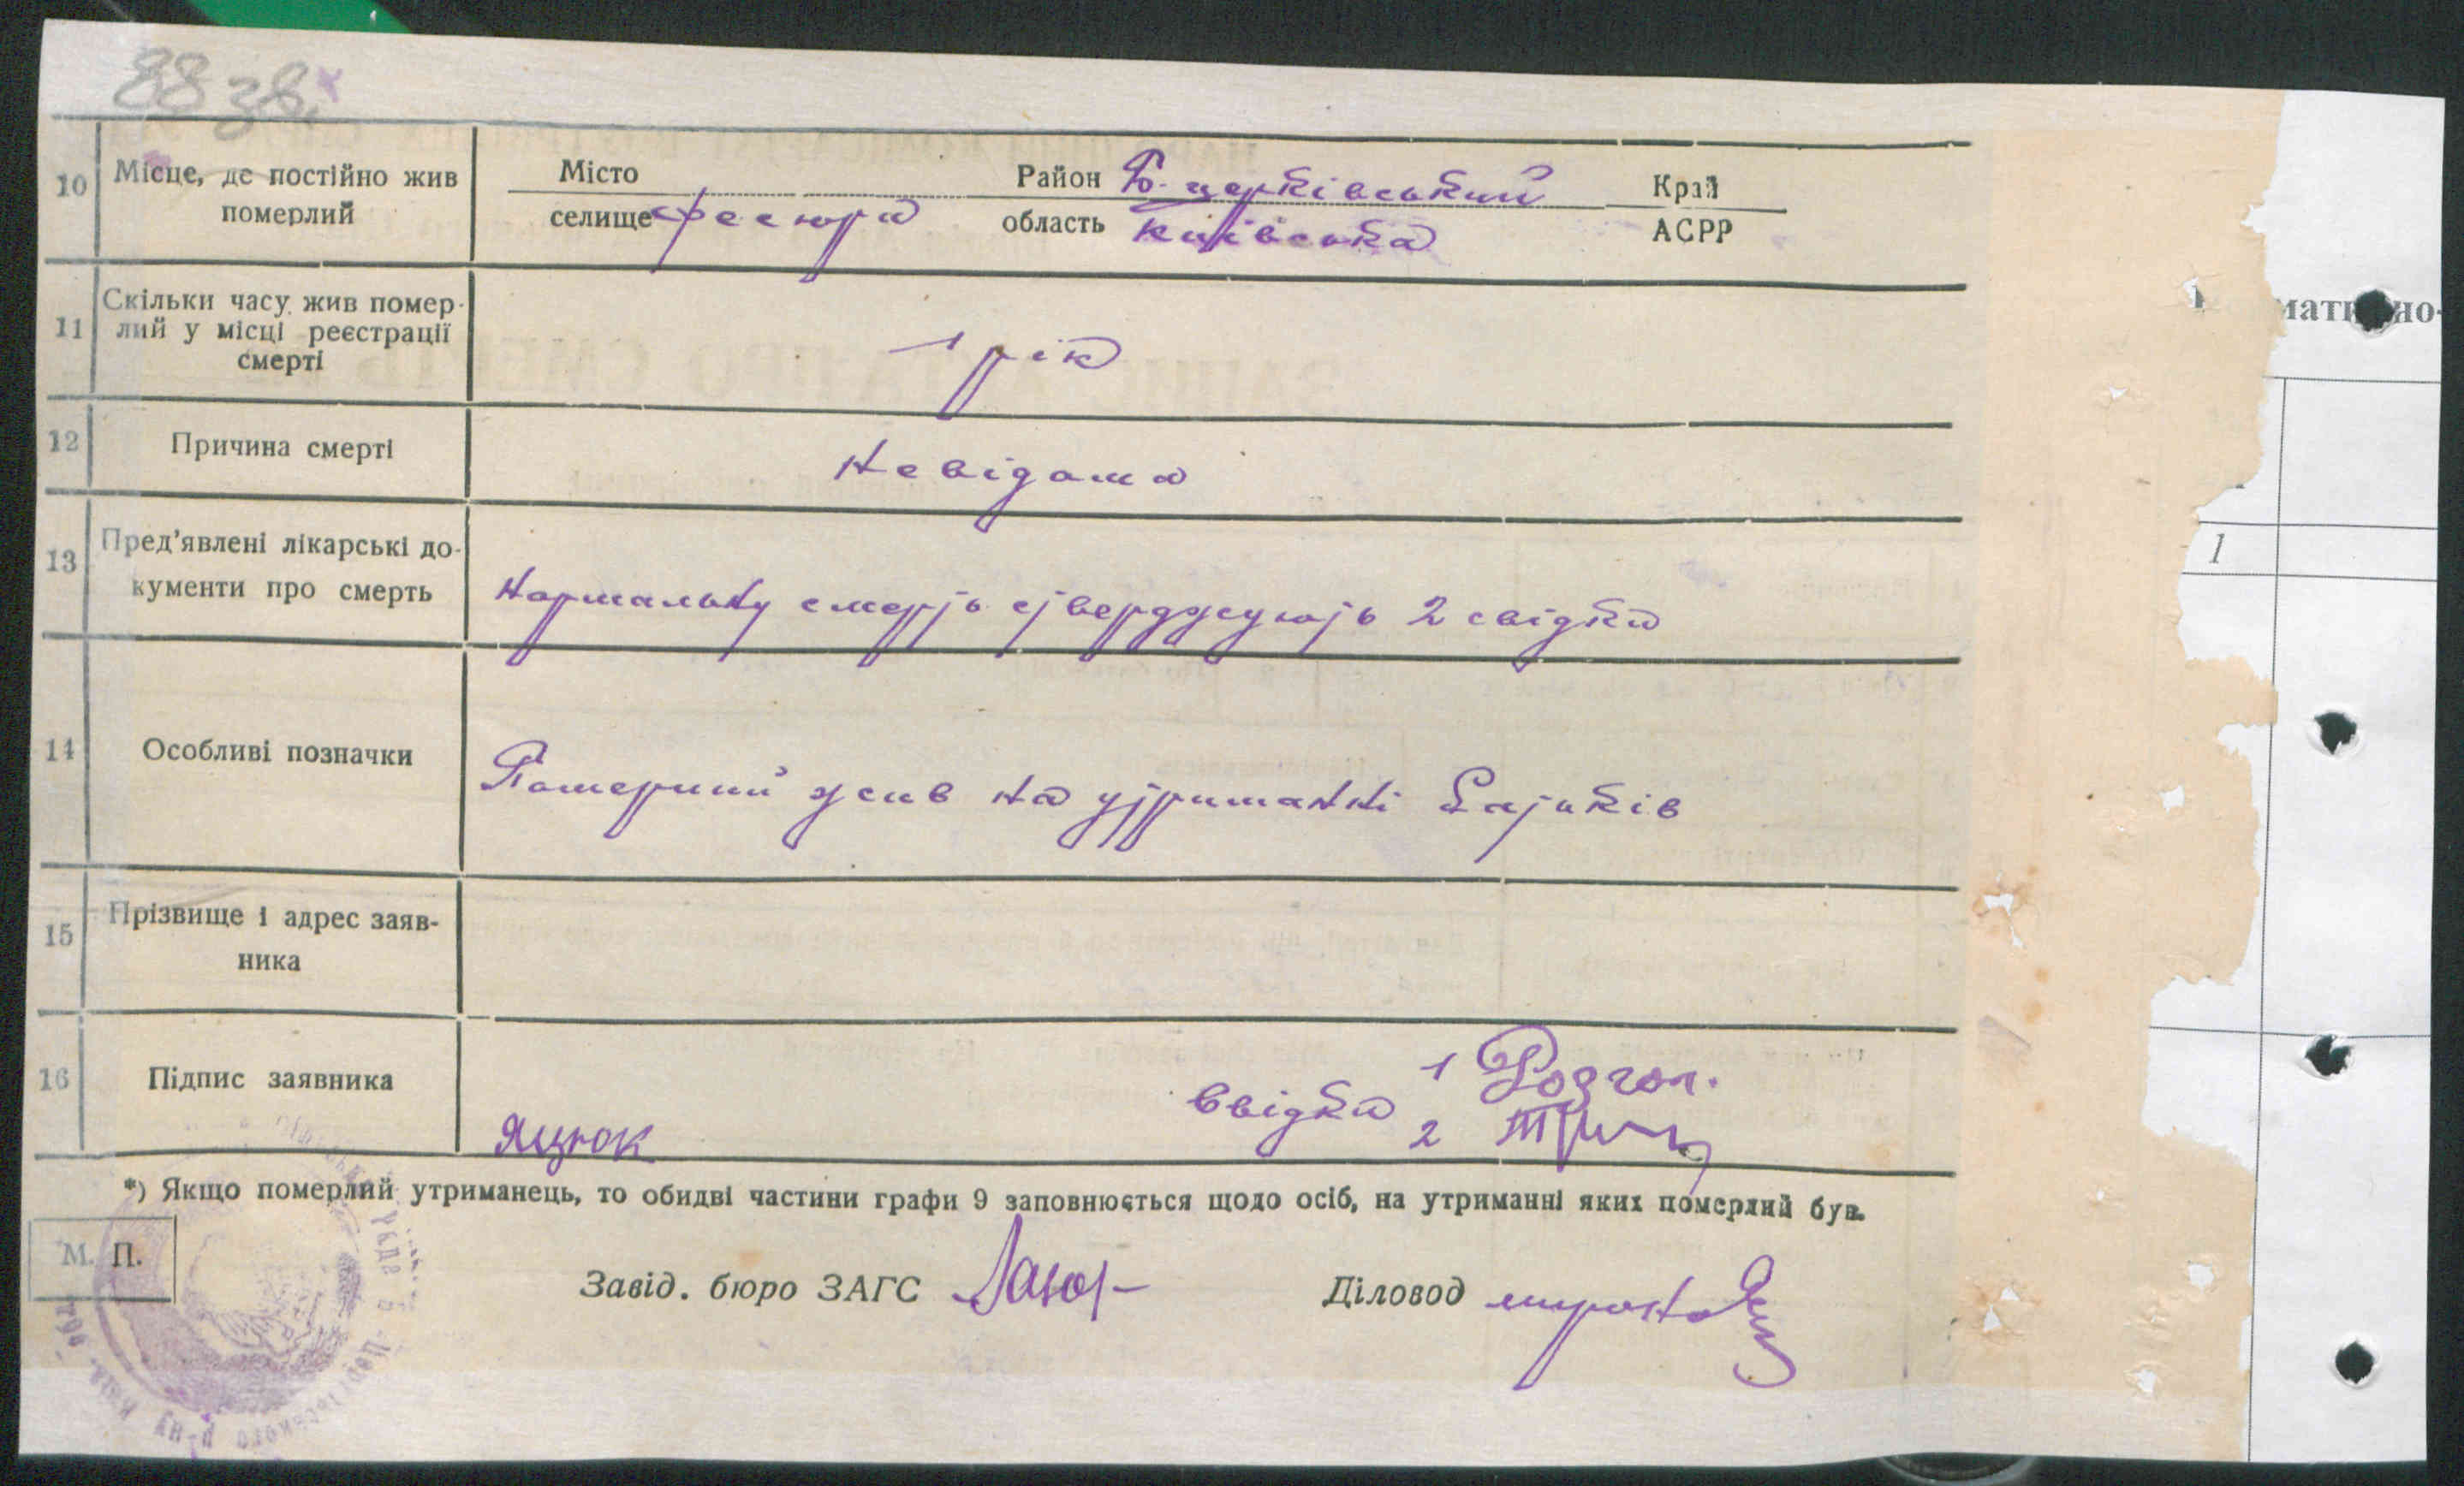 88 зв.
10 Місце, де постійно жив померлий
Місто
селище Фесюри
Район Б-церківський
область київська
Край
АСРР
11 Скільки часу жив помер-
лий у місці реєстрації
смерті
1 рік
12 Причина смерті
Невідома
13 Пред'явлені лікарські до-
кументи про смерть
Нормальну смерть стверджують 2 свідки
14 Особливі позначки
Померший жив на утриманні батьків
15 Прізвище і адрес заяв-
ника
16 Підпис заявника
Яцюк
Свідки 1
2
*) Якщо померлий утриманець, то обидві частини графи 9 заповнюється щодо осіб, на утриманні яких померлий був.
М. П.
Завід. бюро ЗАГС
Діловод
1